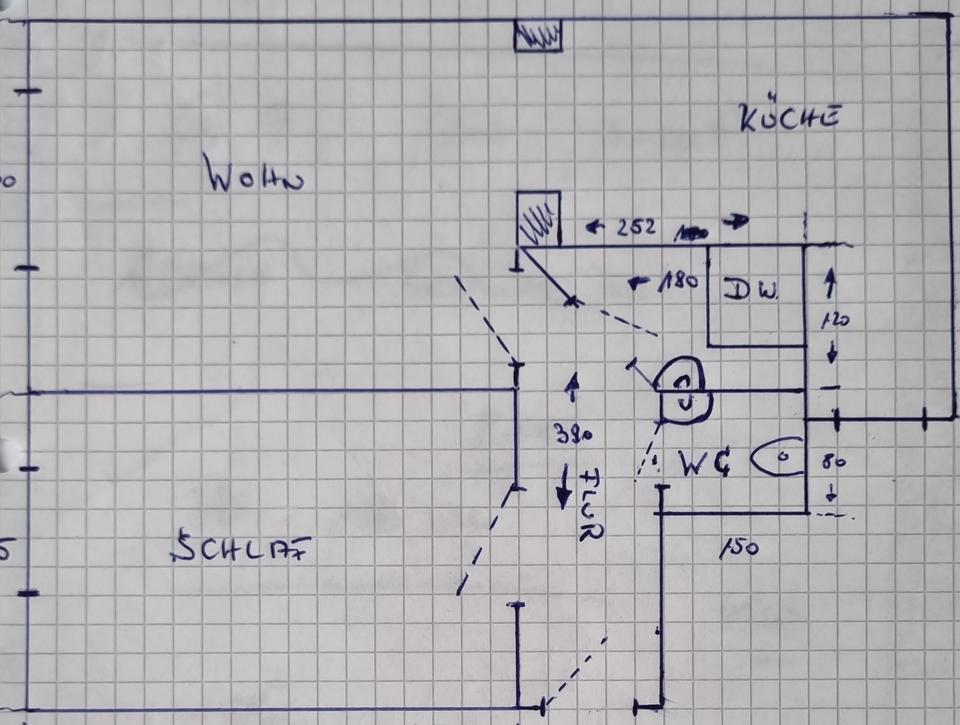 KÜCHE
WOHN
252
180
DW.
120
380
FLUR
WC
80
SCHLAF
150